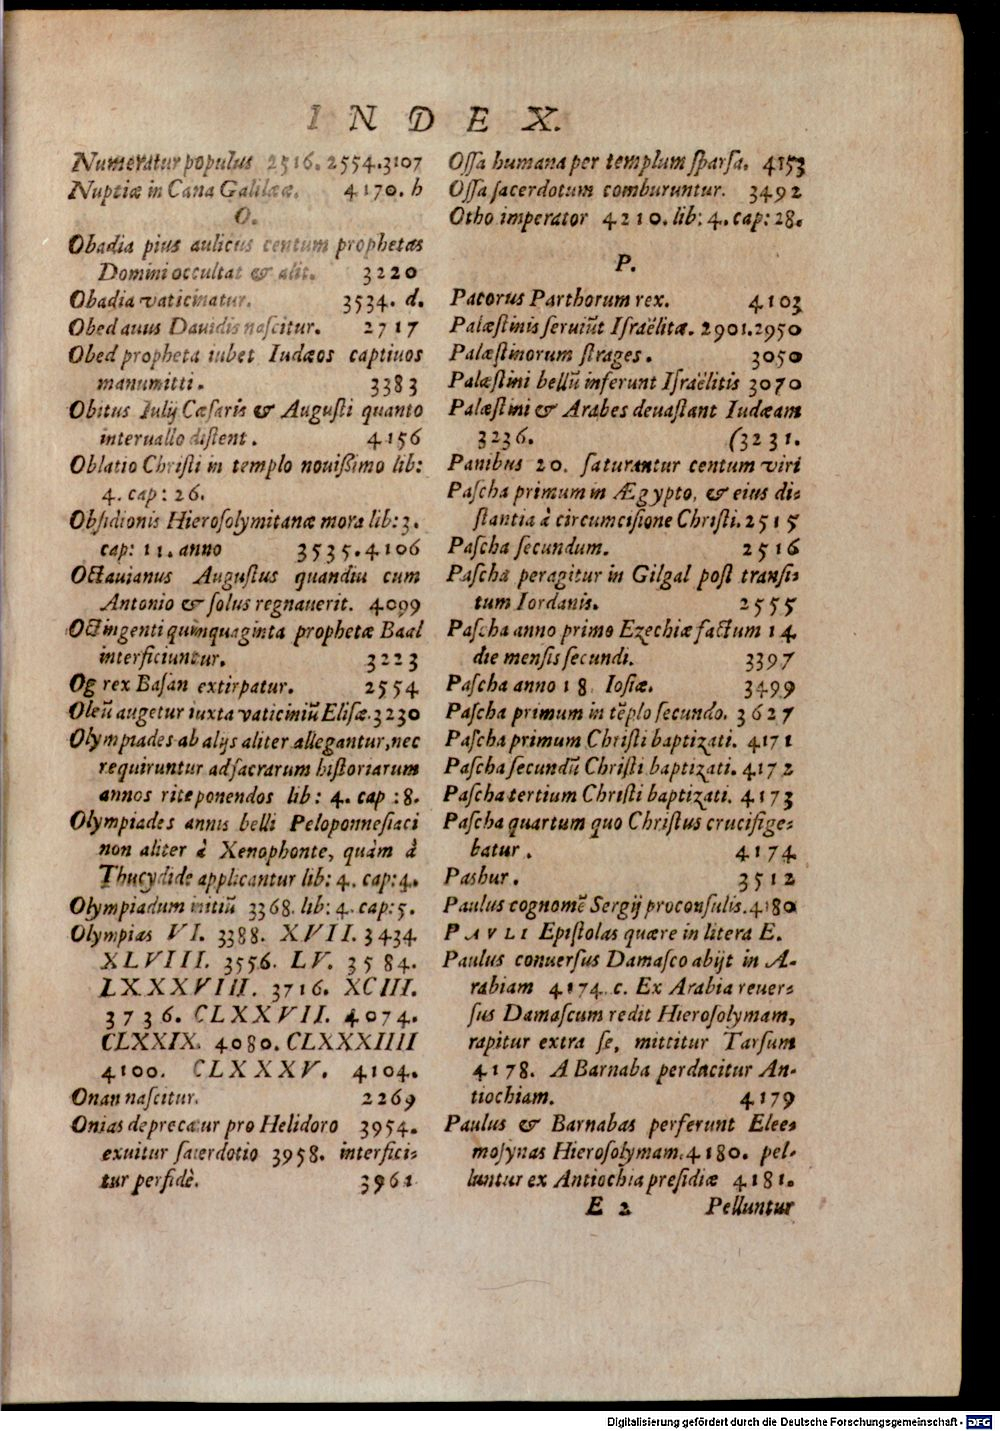 INDEX.
Numeratur populus 2516. 2554. 3107
Nuptiæ in Cana Galilææ. 4170. h
O.
Obadia pius aulicus centum prophetas
Domini occultat & alit. 3220
Obadia vaticinatur. 3534. d.
Obed auus Dauidis nascitur. 2717
Obed propheta iubet Iudæos captiuos
manumitti. 3383
Obitus Iulij Cæsaris & Augusti quanto
interuallo distent. 4156
Oblatio Christi in templo nouißimo lib:
4. cap: 26.
Obsidionis Hierosolymitanæ mora lib: 3.
cap: 11. anno 3535. 4106
Octauianus Augustus quandiu cum
Antonio & solus regnauerit. 4099
Octingenti quinquaginta prophetæ Baal
interficiuntur. 3223
Og rex Basan extirpatur. 2554
Oleũ augetur iuxta vaticiniũ Elisæ. 3230
Olympiades ab alijs aliter allegantur, nec
requiruntur ad sacrarum historiarum
annos rite ponendos lib: 4. cap: 8.
Olympiades annis belli Peloponnesiaci
non aliter à Xenophonte, quàm à
Thucydide applicantur lib: 4. cap: 4.
Olympiadum initiũ 3368. lib: 4. cap: 5.
Olympias VI. 3388. XVII. 3434.
XLVIII. 3556. LV. 3584.
LXXXVIII. 3716. XCIII.
3736. CLXXVII. 4074.
CLXXIX. 4080. CLXXXIIII
4100. CLXXXV. 4104.
Onan nascitur. 2269
Onias deprecatur pro Helidoro 3954.
exuitur sacerdotio 3958. interfici=
tur perfidè. 3961
Ossa humana per templum sparsa. 4153
Ossa sacerdotum comburuntur. 3492
Otho imperator 4210. lib: 4. cap: 28.
P.
Pacorus Parthorum rex. 4103
Palæstinis seruiũt Israëlitæ. 2901. 2950
Palæstinorum strages. 3050
Palæstini bellũ inferunt Israëlitis 3070
Palæstini & Arabes deuastant Iudæam
3236. (3231.
Panibus 20. saturantur centum viri
Pascha primum in Ægypto, & eius di=
stantia à circumcisione Christi. 2515
Pascha secundum. 2516
Pascha peragitur in Gilgal post transi=
tum Iordanis. 2555
Pascha anno primo Ezechiæ factum 14
die mensis secundi. 3397
Pascha anno 18. Iosiæ. 3499
Pascha primum in tẽplo secundo. 3627
Pascha primum Christi baptizati. 4171
Pascha secundũ Christi baptizati. 4172
Pascha tertium Christi baptizati. 4173
Pascha quartum quo Christus crucifige=
batur. 4174
Pashur. 3512
Paulus cognomẽ Sergij proconsulis. 4180
PAVLI Epistolas quære in litera E.
Paulus conuersus Damasco abijt in A=
rabiam 4174. c. Ex Arabia reuer=
sus Damascum redit Hierosolymam,
rapitur extra se, mittitur Tarsum
4178. A Barnaba perducitur An=
tiochiam. 4179
Paulus & Barnabas perferunt Elee=
mosynas Hierosolymam. 4180. pel=
luntur ex Antiochia presidiæ 4181.
E 2 Pelluntur
Digitalisierung gefördert durch die Deutsche Forschungsgemeinschaft - DFG